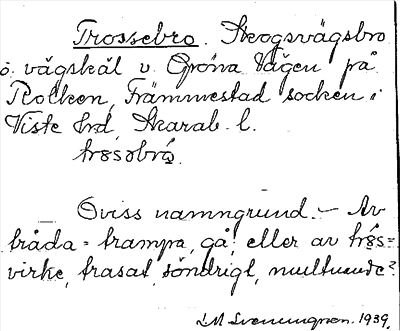 Trossebro. Skogsvägsbro
o. vägskäl v. Gröna Vägen på
Rolken, Främmestad socken i
Viste hrd, Skarab. l.
Oviss namngrund. - Av
tråda = trampa, gå! eller av
virke, trasat, söndrigt, multnande?
1939.